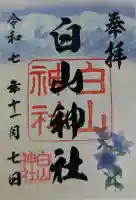 奉拝
白山神社
令和七年十一月七日
白山
神社
白山
神社